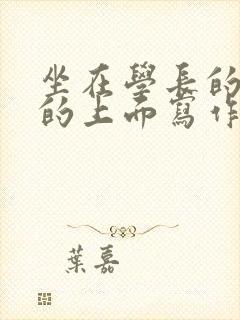 坐在學長的
的上而寫作
葉嘉